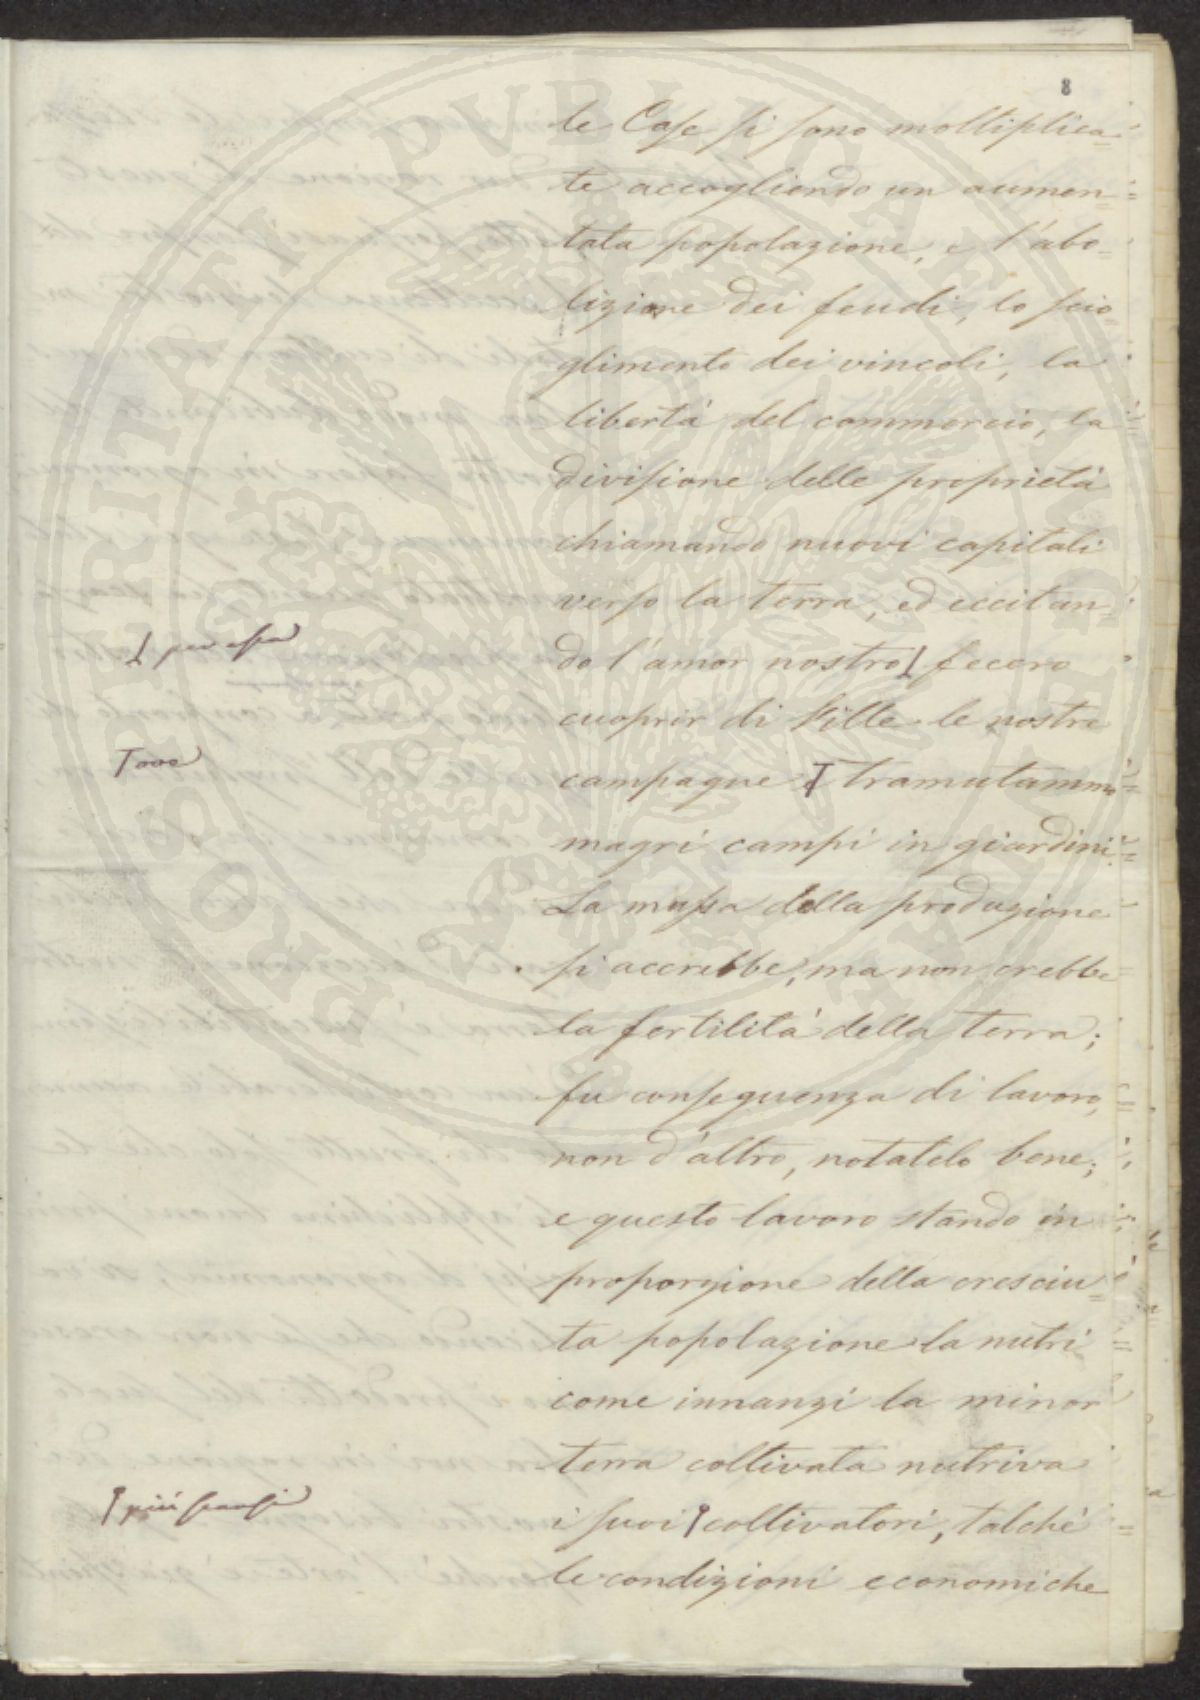 8
le Case si sono moltiplica=
te accogliendo un aumen=
tata popolazione, e l'abo=
lizione dei feudi, lo scio=
glimento dei vincoli, la
libertà del commercio, la
divisione delle proprietà
chiamando nuovi capitali
verso la terra, ed eccitan
per essa
do l'amor nostro fecero
cuoprir di Ville le nostre
ove
campagne tramutammo
magri campi in giardini.
La massa della produzione
si accrebbe, ma non crebbe
la fertilità della terra;
fu conseguenza di lavoro,
non d'altro, notatelo bene;
e questo lavoro stando in
proporzione della cresciu=
ta popolazione la nutrì
come innanzi la minor
terra coltivata nutriva
più scarsi
i suoi coltivatori, talchè
le condizioni economiche
PROSPERITATI PVBLICAE AVGENDAE